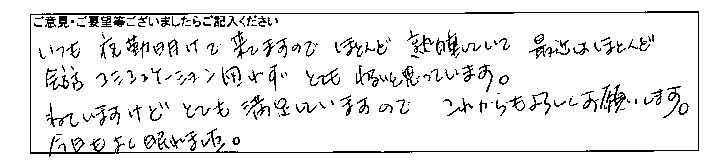 ご意見・ご要望等ございましたらご記入ください
いつも夜勤明けで来てますのでほとんど熟睡していて最近はほとんど
会話コミュニケーション用わず とても悪いと思っています。
ねていますけどとても満足していますので これからもよろしくお願いします。
今日もよく眠れました。